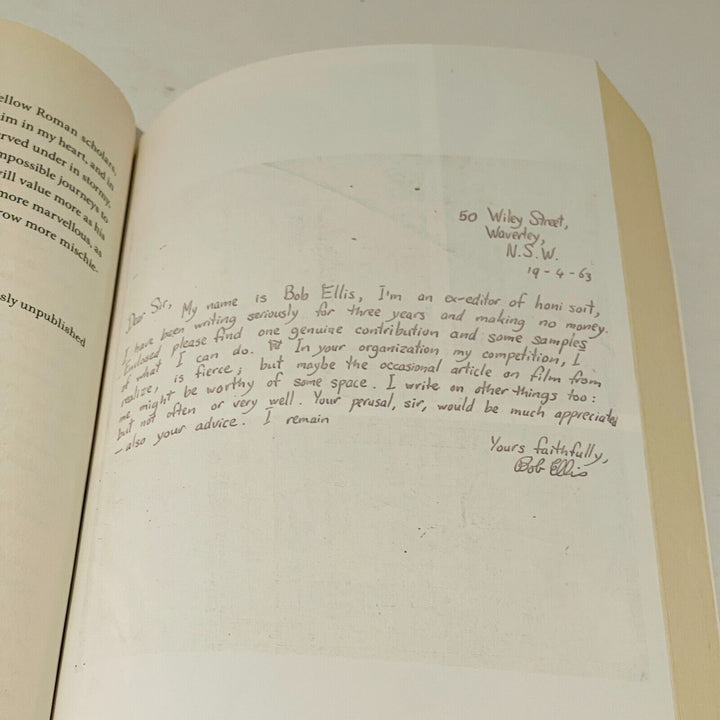 ellow Roman scholars,
im in my heart, and in
rved under in stormy,
mpossible journeys to
ill value more as his
more marvellous, as
row more mischie-
sly unpublished
50 Wiley Street,
Waverley,
N.S.W.
19-4-63
Dear Sir, My name is Bob Ellis, I'm an ex-editor of honi soit,
I have been writing seriously for three years and making no money.
Enclosed please find one genuine contribution and some samples
of what I can do. In your organization my competition, I
realize, is fierce; but maybe the occasional article on film from
me might be worthy of some space. I write on other things too:
but not often or very well. Your perusal, sir, would be much appreciated
– also your advice. I remain
Yours faithfully,
Bob Ellis